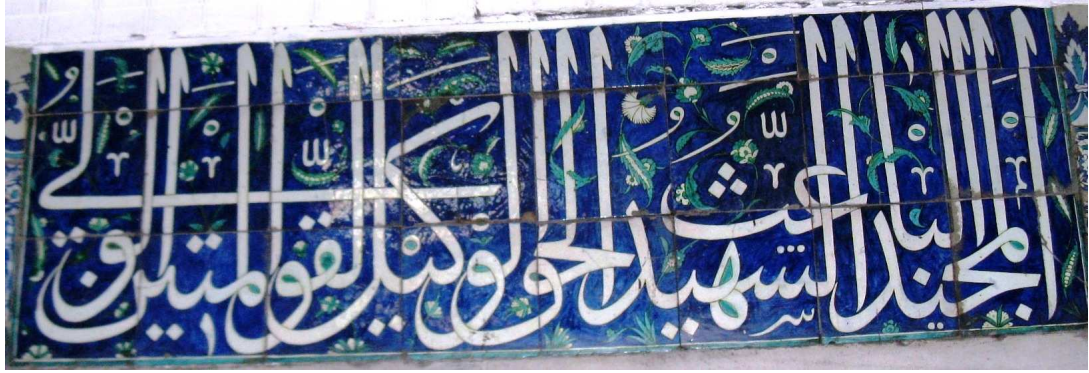 المجيد الباعث الشهيد الحق الوكيل القوي المتين الولي